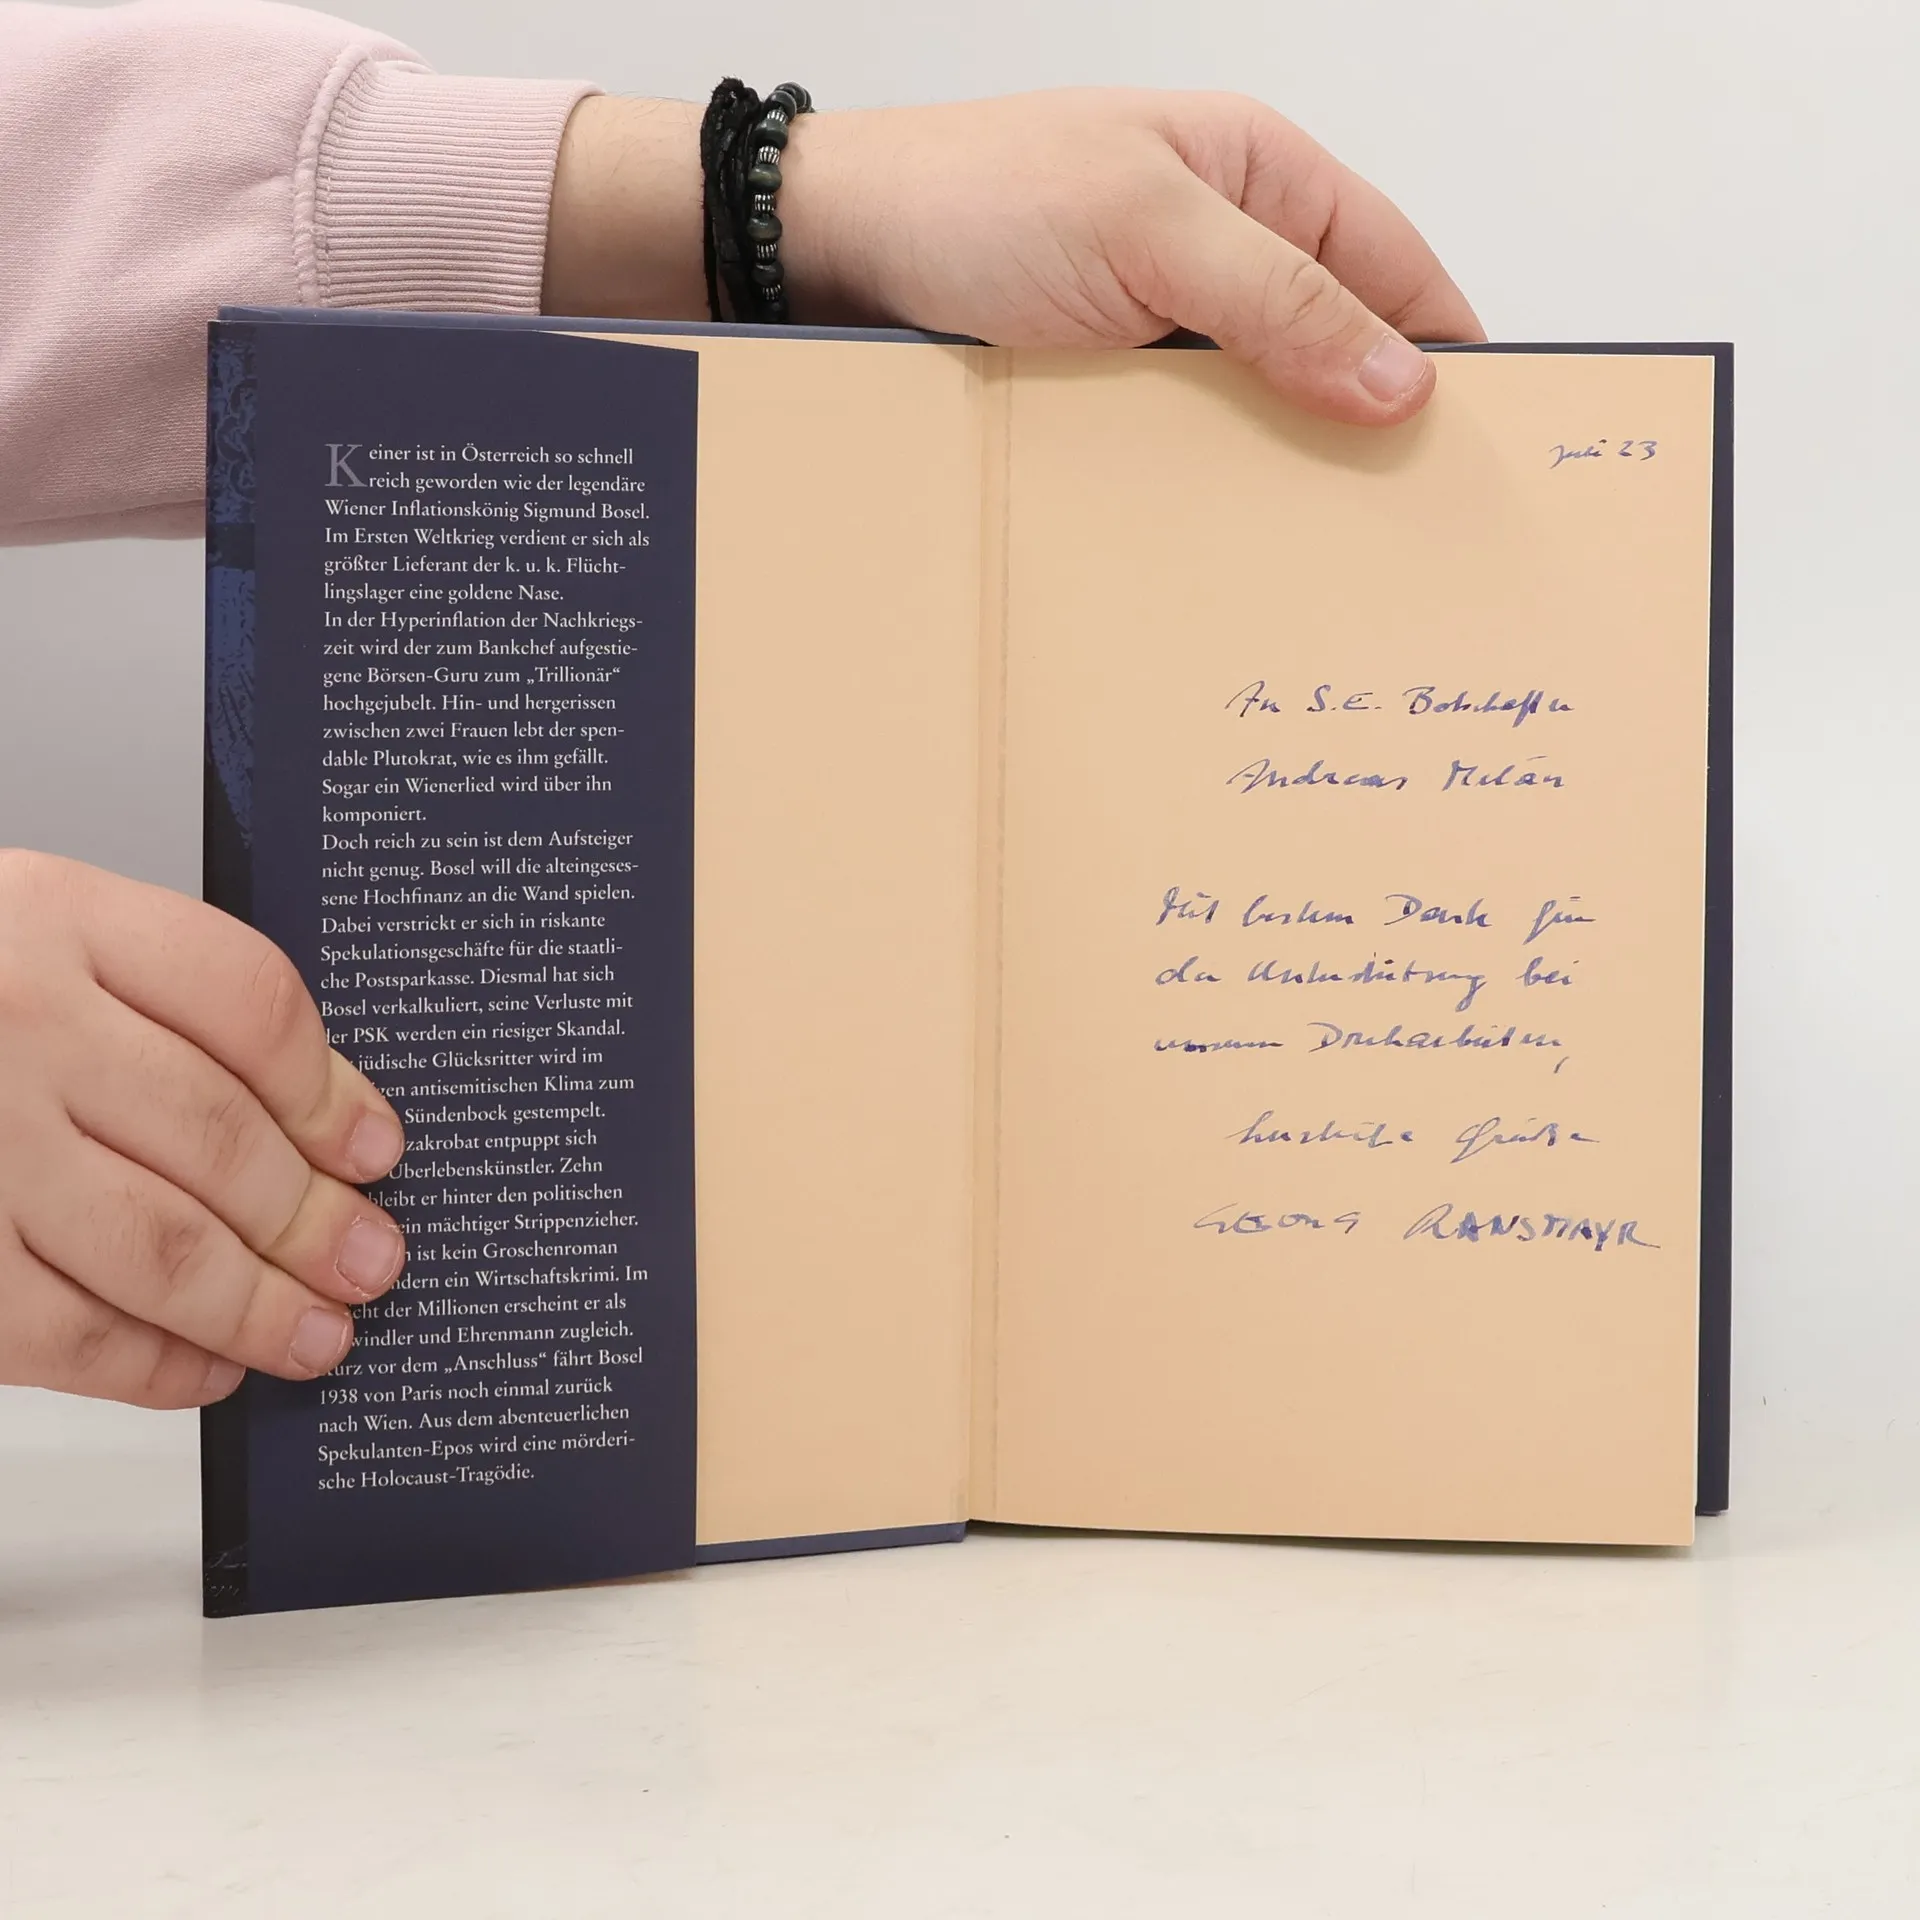 Keiner ist in Österreich so schnell
reich geworden wie der legendäre
Wiener Inflationskönig Sigmund Bosel.
Im Ersten Weltkrieg verdient er sich als
größter Lieferant der k. u. k. Flücht-
lingslager eine goldene Nase.
In der Hyperinflation der Nachkriegs-
zeit wird der zum Bankchef aufgestie-
gene Börsen-Guru zum „Trillionär“
hochgejubelt. Hin- und hergerissen
zwischen zwei Frauen lebt der spen-
dable Plutokrat, wie es ihm gefällt.
Sogar ein Wienerlied wird über ihn
komponiert.
Doch reich zu sein ist dem Aufsteiger
nicht genug. Bosel will die alteingeses-
sene Hochfinanz an die Wand spielen.
Dabei verstrickt er sich in riskante
Spekulationsgeschäfte für die staatli-
che Postsparkasse. Diesmal hat sich
Bosel verkalkuliert, seine Verluste mit
der PSK werden ein riesiger Skandal.
jüdische Glücksritter wird im
gen antisemitischen Klima zum
Sündenbock gestempelt.
zakrobat entpuppt sich
Überlebenskünstler. Zehn
bleibt er hinter den politischen
ein mächtiger Strippenzieher.
ist kein Groschenroman
ndern ein Wirtschaftskrimi. Im
cht der Millionen erscheint er als
windler und Ehrenmann zugleich.
Kurz vor dem „Anschluss“ fährt Bosel
1938 von Paris noch einmal zurück
nach Wien. Aus dem abenteuerlichen
Spekulanten-Epos wird eine mörderi-
sche Holocaust-Tragödie.
Juli 23
An S.E. Botschafter
Andreas Melán
Mit bestem Dank für
die Unterstützung bei
unseren Dreharbeiten,
herzliche Grüße
GEORG RANSMAYR